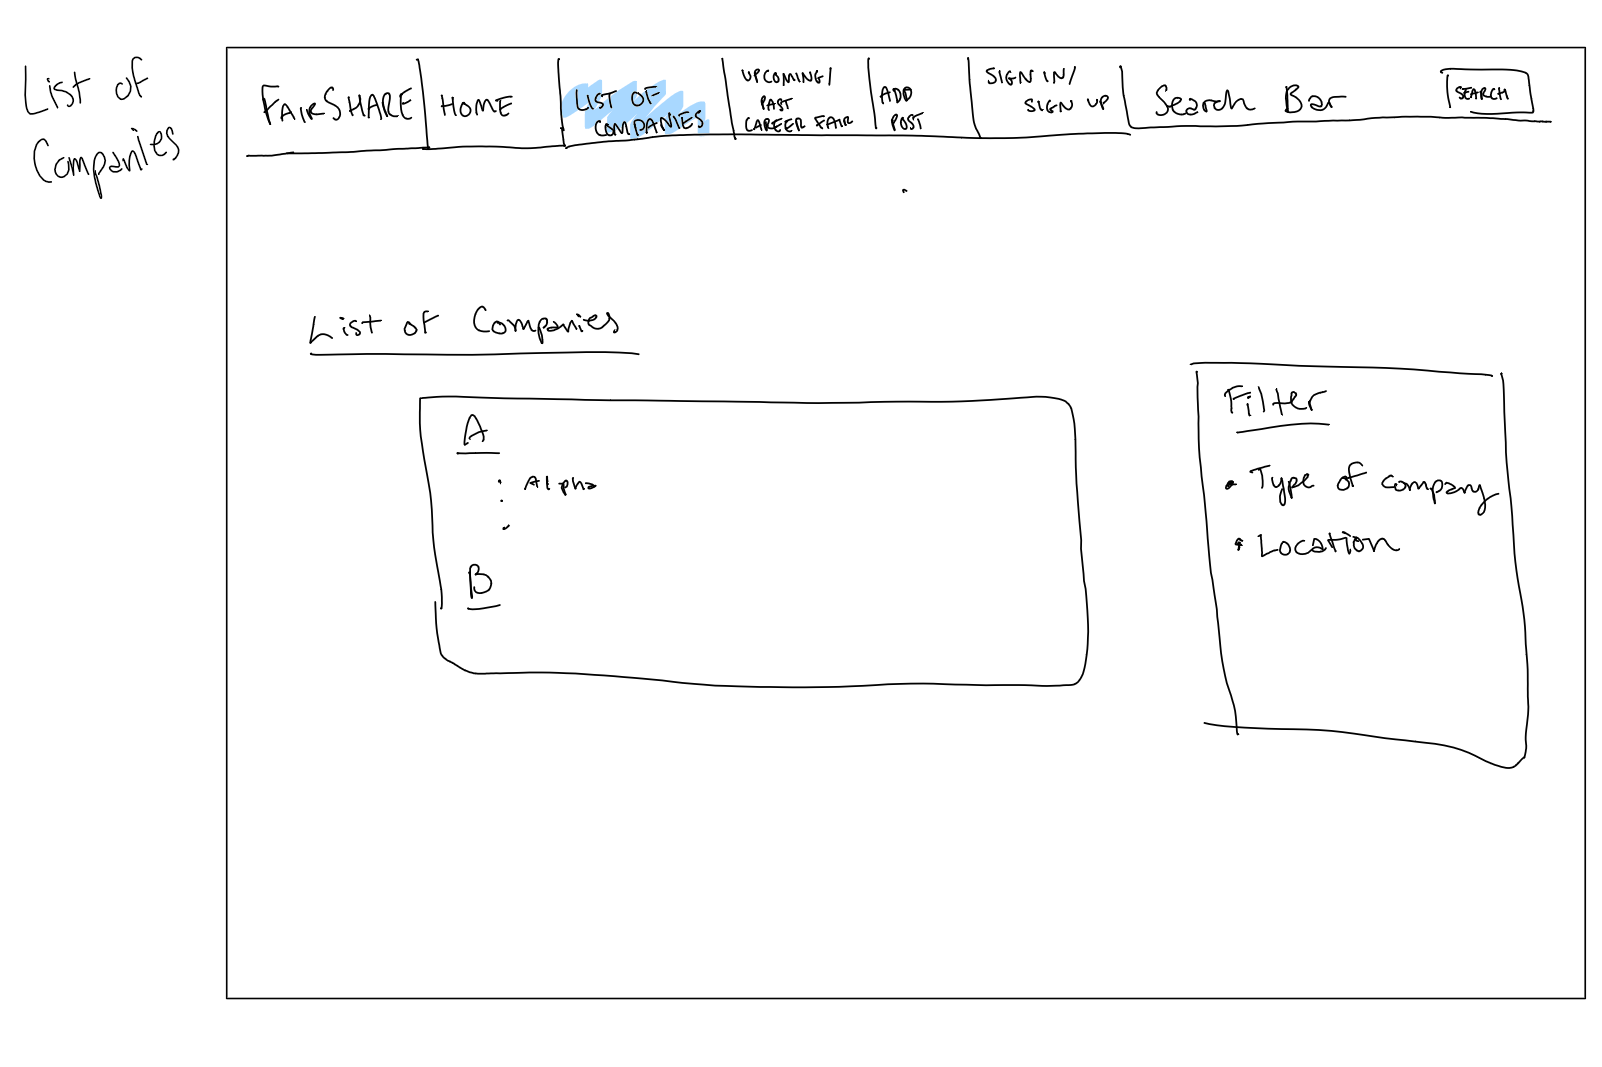 List of
Companies
FAIRSHARE
HOME
LIST OF
COMPANIES
UPCOMING/
PAST
CAREER FAIR
ADD
POST
SIGN IN/
SIGN UP
Search Bar
SEARCH
List of Companies
A
Alpha
B
Filter
• Type of company
• Location